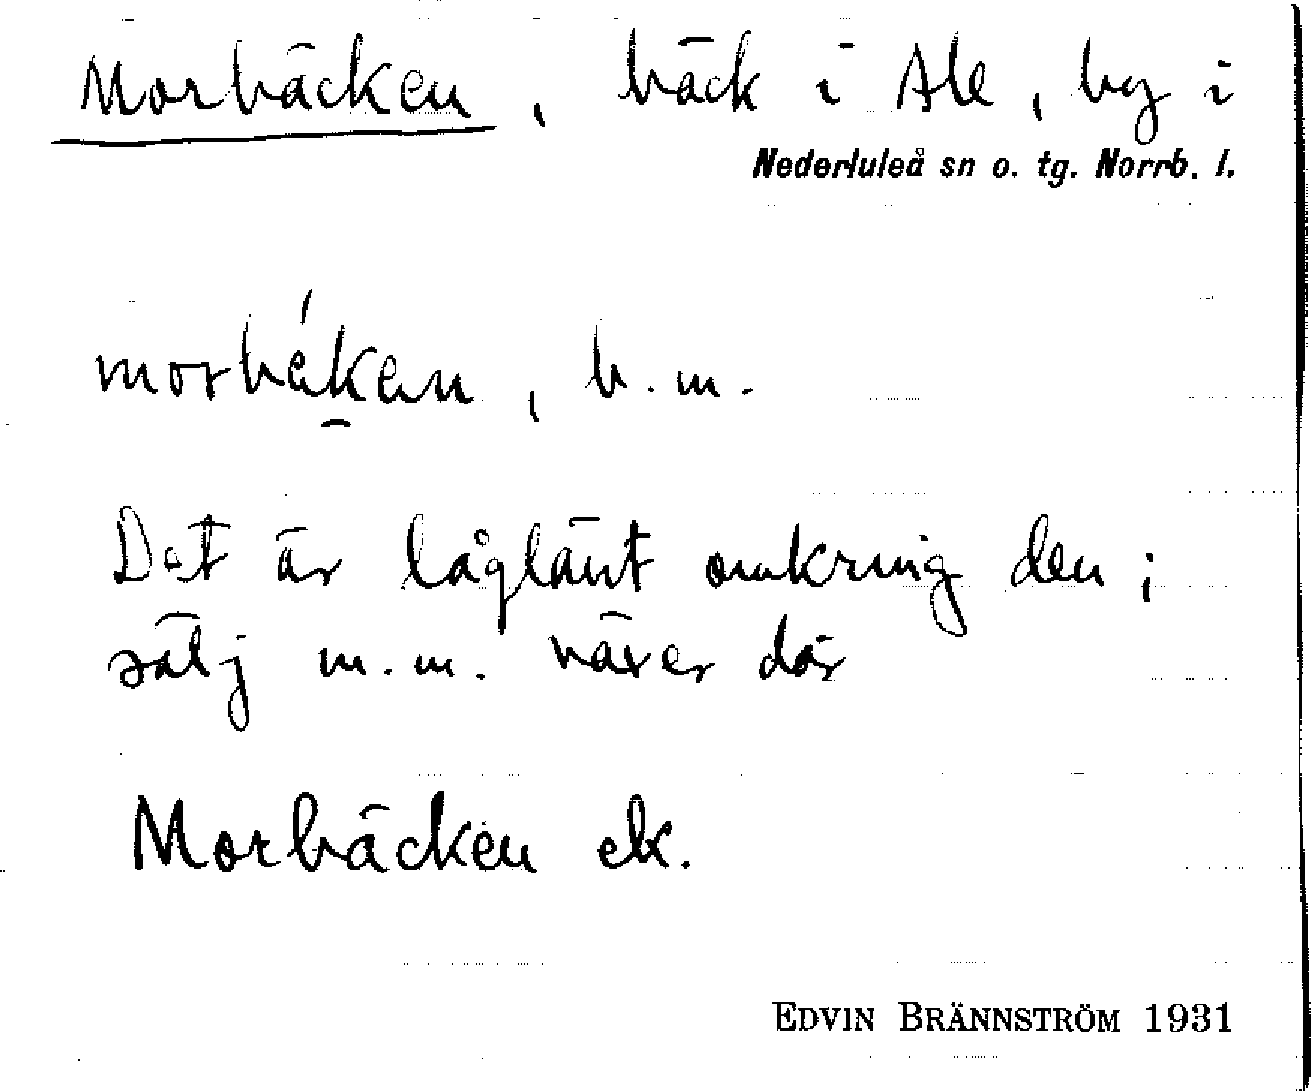 Morbäcken, bäck i Ale, by i
Nederluleå sn o. tg. Norrb. l.
morbékan, b.m.
Det är låglänt omkring den;
sälj m.m. växer där
Morbäcken ek.
EDVIN BRÄNNSTRÖM 1931